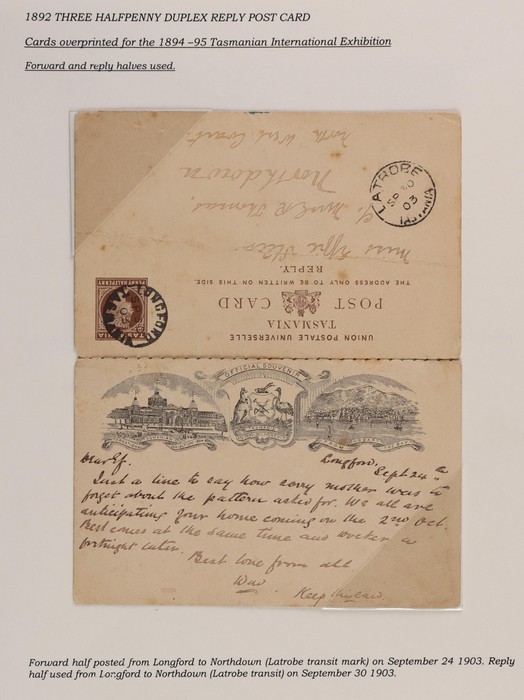 1892 THREE HALFPENNY DUPLEX REPLY POST CARD
Cards overprinted for the 1894 –95 Tasmanian International Exhibition
Forward and reply halves used.
North West Coast
Northdown
Thomas,
Miss Effie
LATROBE
SP 30
03
TASMANIA
LONGFORD
TASMANIA
PENNY HALFPENNY
UNION POSTALE UNIVERSELLE
TASMANIA
POST CARD
THE ADDRESS ONLY TO BE WRITTEN ON THIS SIDE.
REPLY.
OFFICIAL SOUVENIR
Longford,
Sept 24th
Dear Ef.
Just a line to say how sorry mother was to
forget about the pattern asked for. We all are
anticipating your home coming on the 2nd Oct.
Best comes at the same time and a
fortnight later.
Best love from all
Keep
Forward half posted from Longford to Northdown (Latrobe transit mark) on September 24 1903. Reply
half used from Longford to Northdown (Latrobe transit) on September 30 1903.